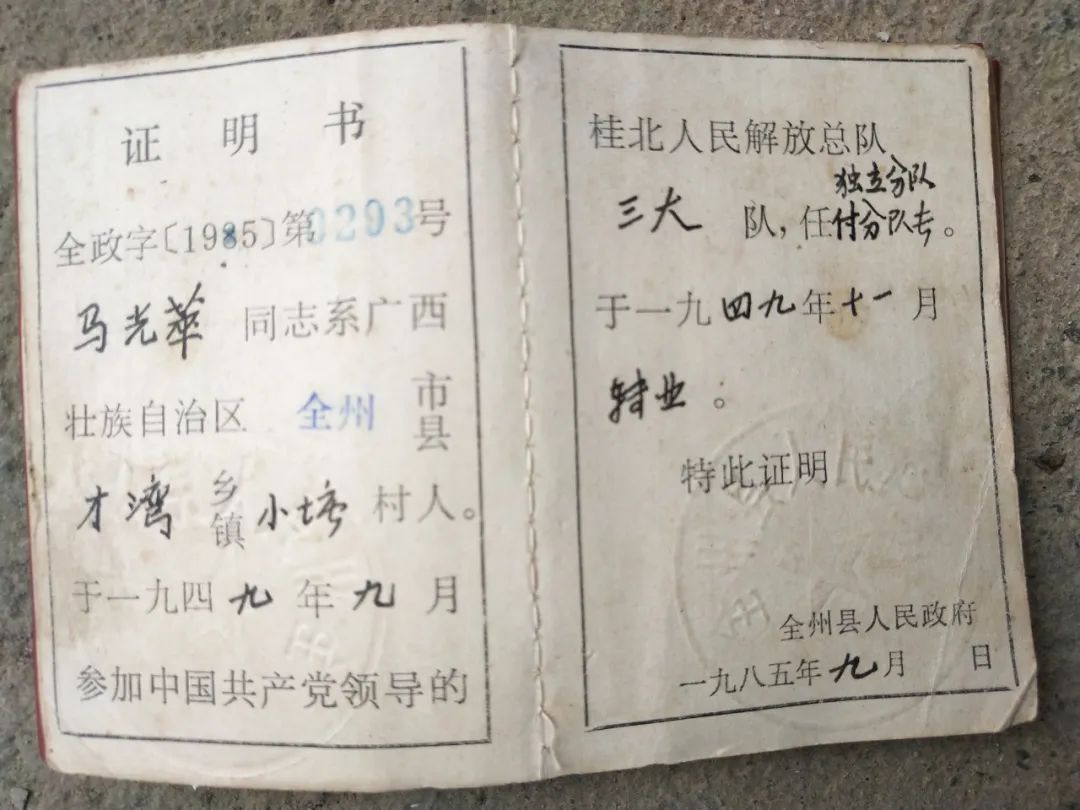 证明书
全政字〔1985〕第0293号
马光华 同志系广西
壮族自治区 全州 市县
才湾 乡镇 小塔 村人。
于一九四九年九月
参加中国共产党领导的
桂北人民解放总队
独立分队
三大 队，任付分队长。
于一九四九年十一月
转业。
特此证明
全州县人民政府
一九八五年九月 日